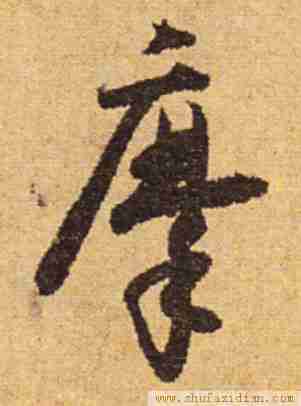 摩
www.shufazidian.com